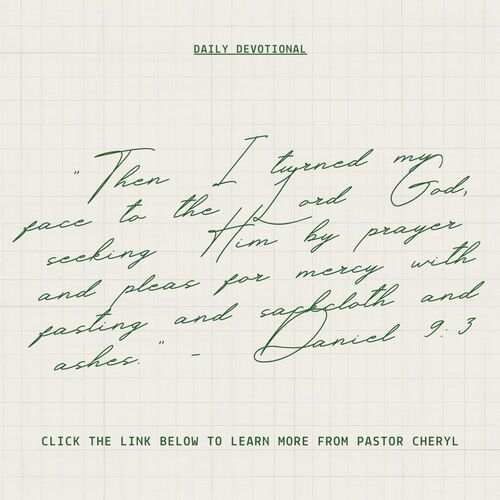 DAILY DEVOTIONAL
"Then I turned my
face to the Lord God,
seeking Him by prayer
and pleas for mercy with
fasting and sackcloth and
ashes." - Daniel 9:3
CLICK THE LINK BELOW TO LEARN MORE FROM PASTOR CHERYL